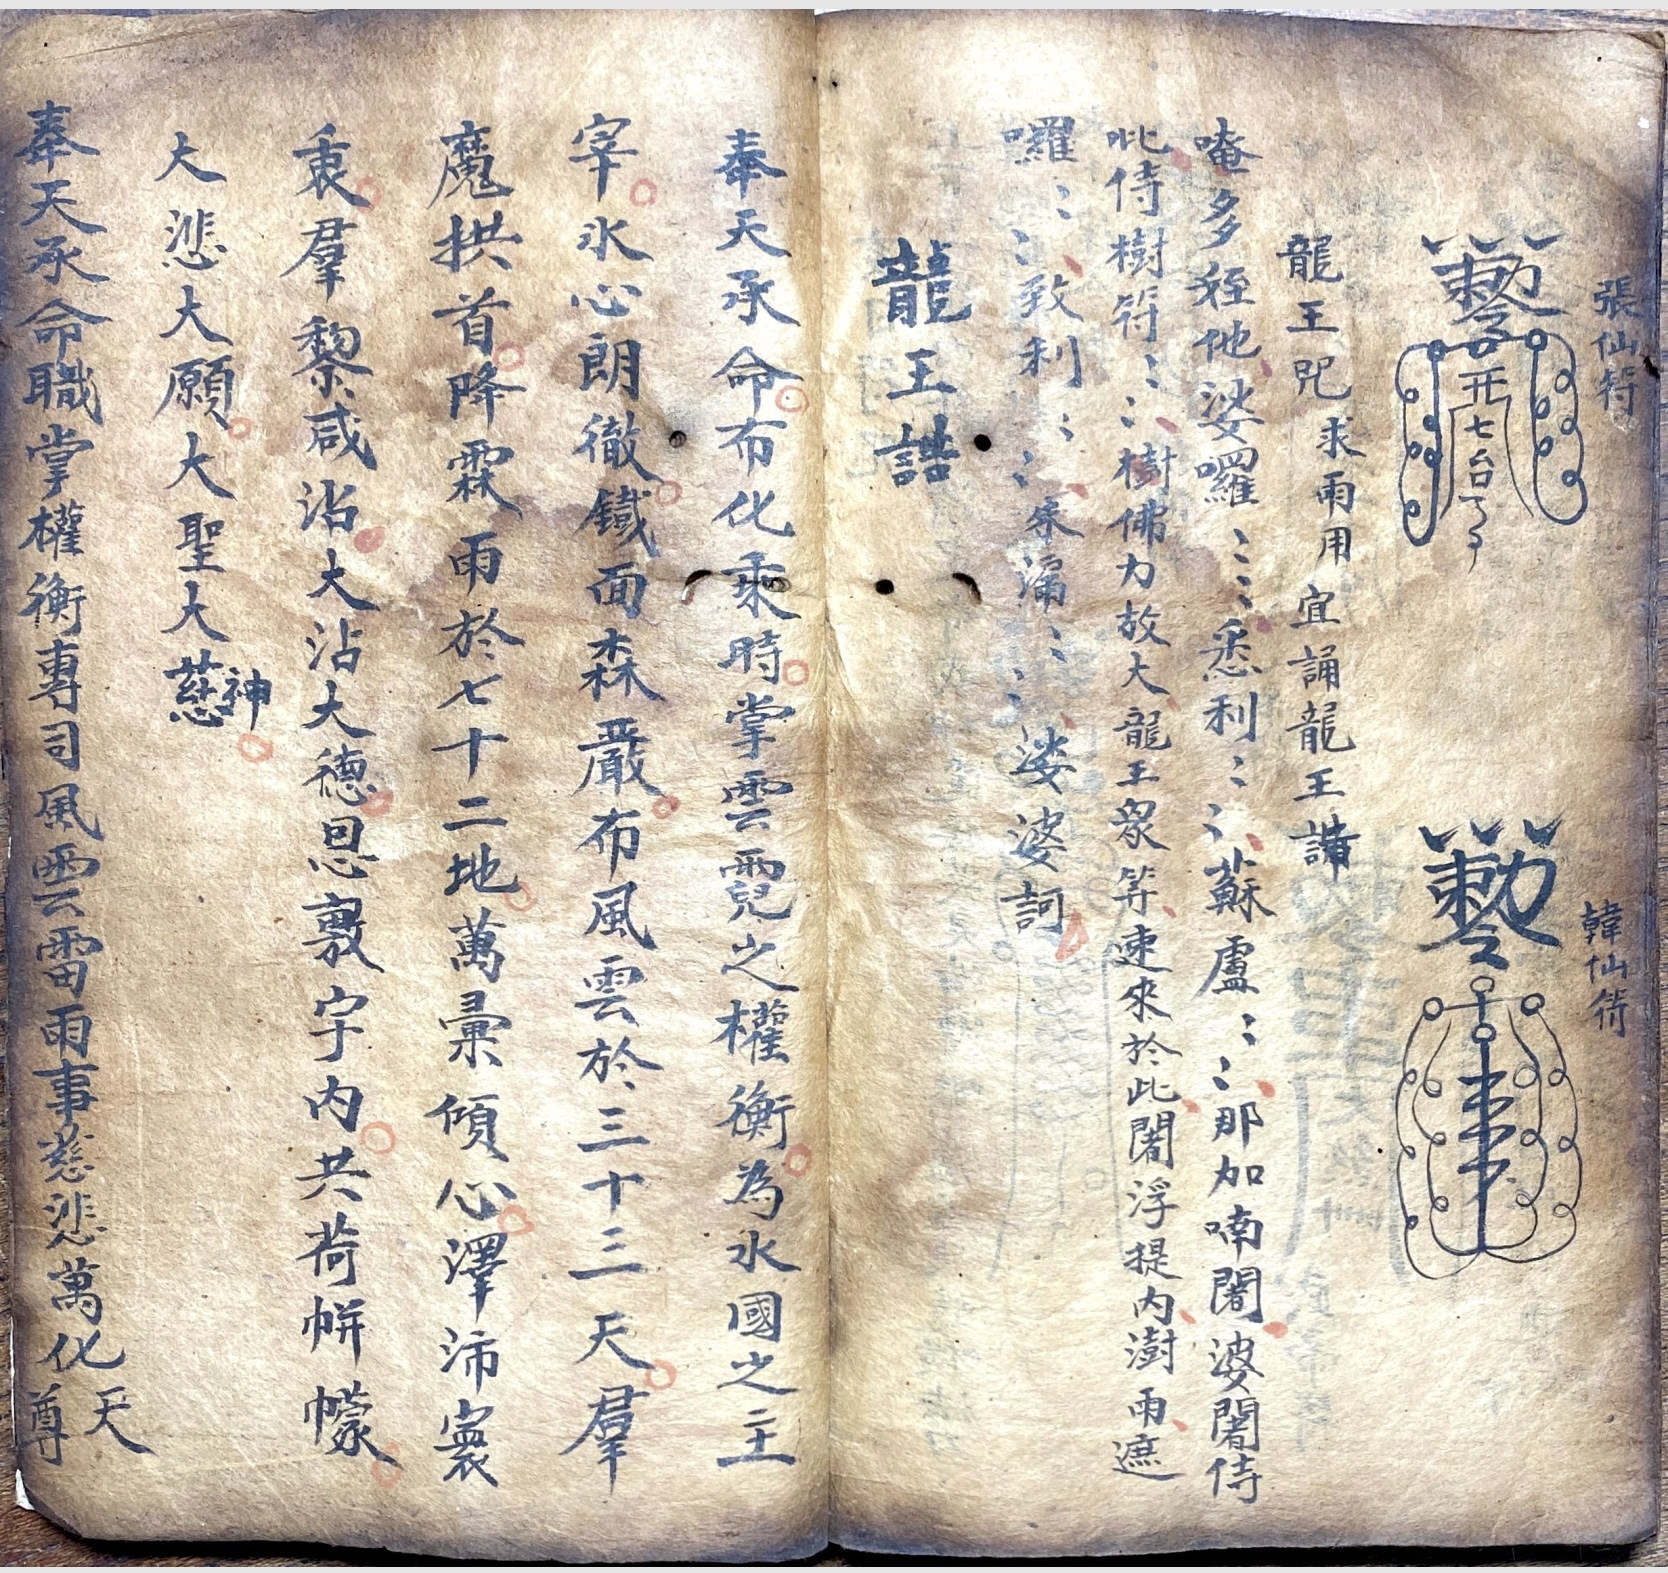 張仙符
韓仙符
龍王咒 求雨用 宜誦龍王誥
唵多姪他娑囉⺀⺀悉利⺀⺀蘇盧⺀⺀那加喃闍婆闍侍
吡侍樹符⺀⺀樹佛力故大龍王眾等速來於此闍浮提內澍雨遮
囉⺀⺀致利⺀⺀⺀⺀娑婆訶
龍王誥
奉天承命布化乘時掌雲霓之權衡為水國之主
宰氷心朗徹鐵面森嚴布風雲於三十三天羣
魔拱首降霖雨於七十二地萬彙傾心澤沛寰
衷羣黎咸沾大沾大德恩敷宇內共荷帡幪
大悲大願大聖大慈神
奉天承命職掌權衡專司風雲雷雨事慈悲萬化天尊